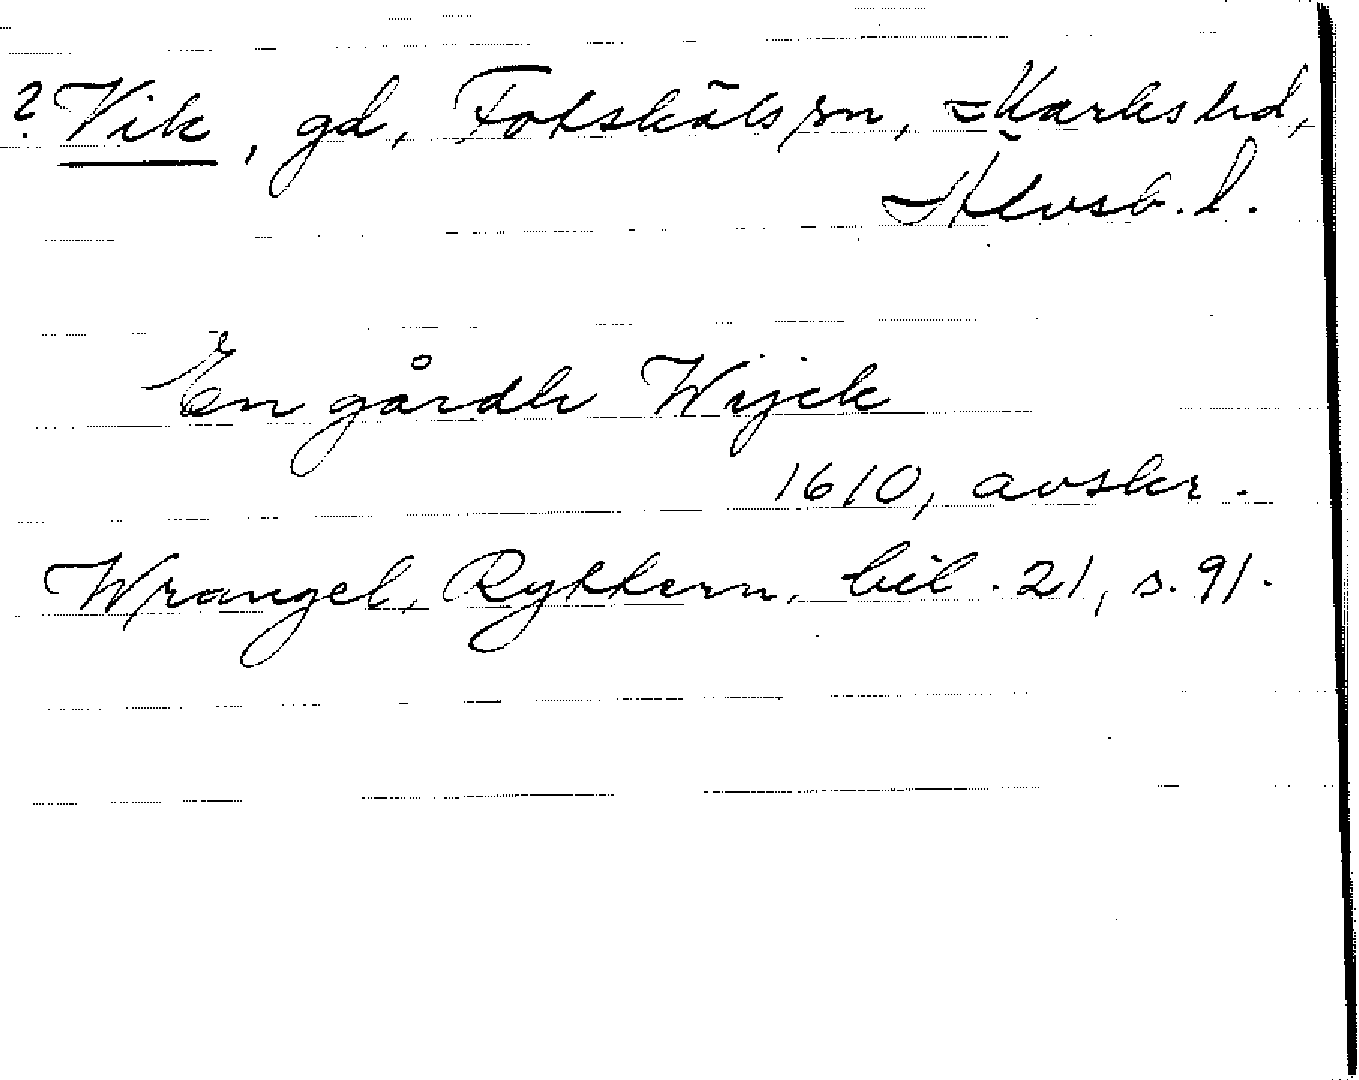 ? Vik, gd, Fotskäls sn, Marks hd,
Älvsb. l.
En gårdh Wijck
1610, avskr.
Wrangel, Ryttern, bil. 21, s. 91.